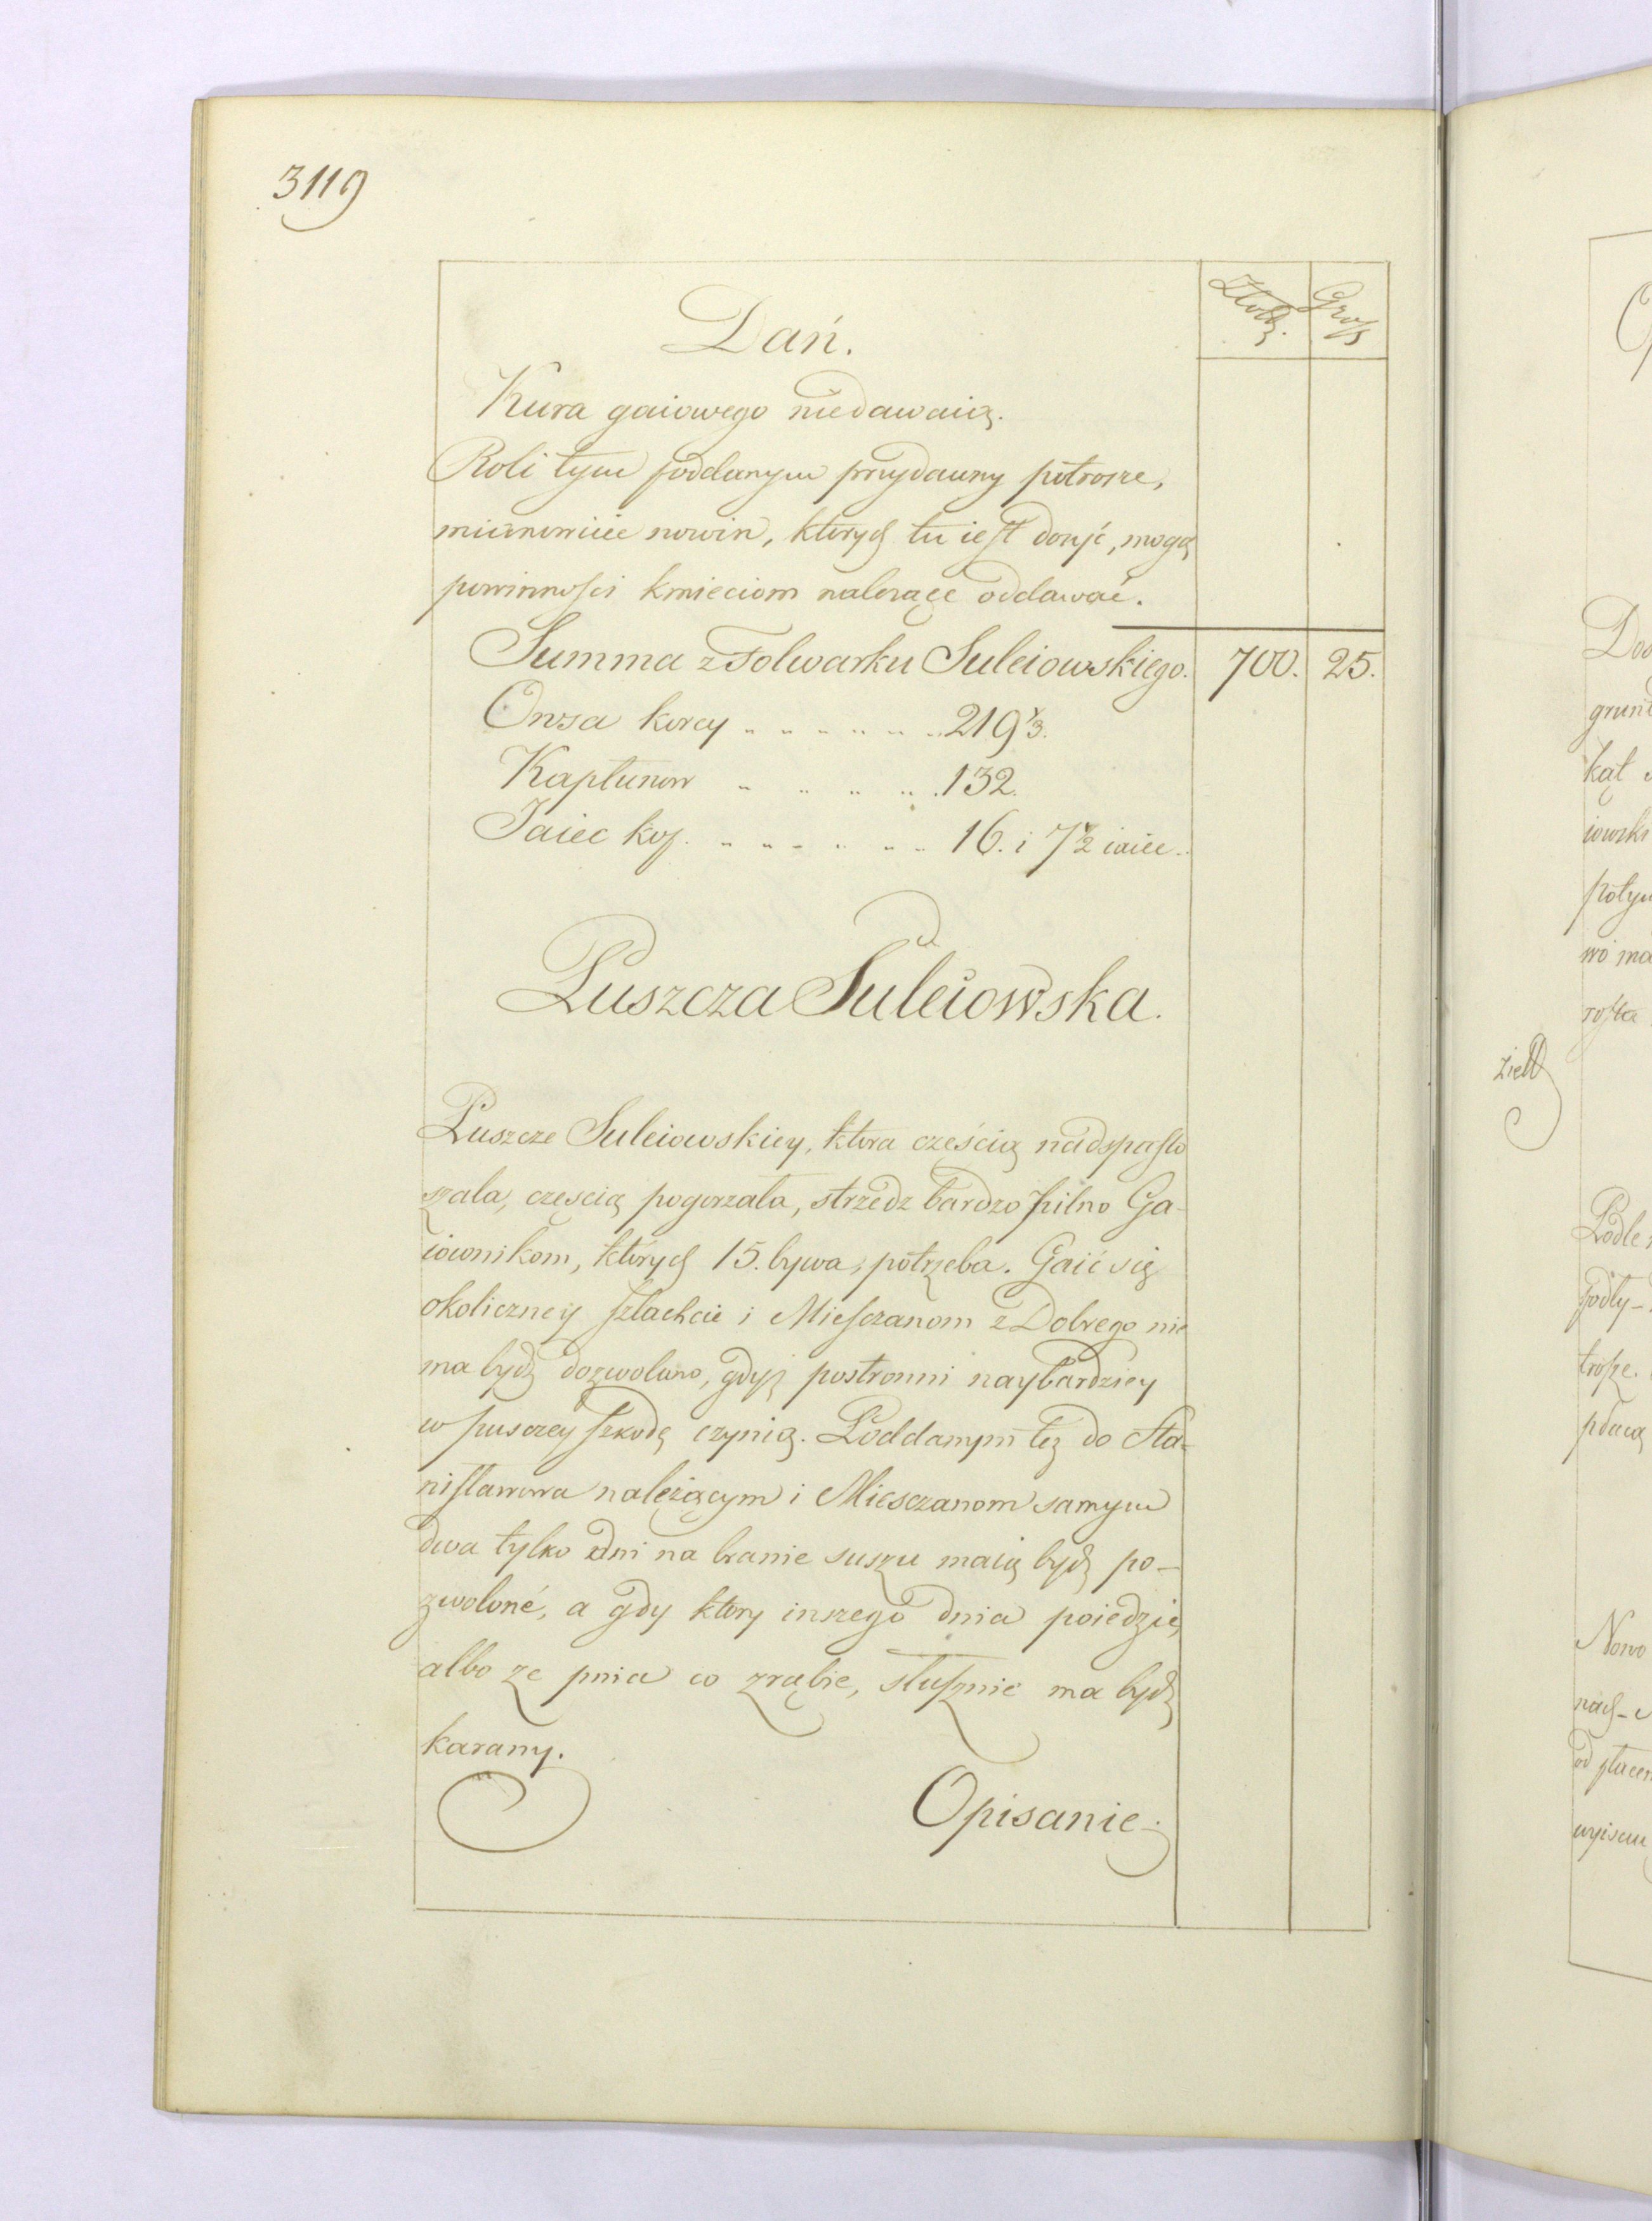 3119
Złoty. Grosz
Dań.
Kura gaiowego niedawaią.
Roli tym poddanym przydawny potrosze,
mianowicie nowin, ktorych tu iest dosyć, mogą
powinności kmieciom należące oddawać.
Summa z folwarku Suleiowskiego. 700. 25.
Owsa korcy 219⅓.
Kapłunow 132.
Jaiec kop. 16. i 7½ iaiec.
Puszcza Suleiowska.
Puszcze Suleiowskiey, ktora częścią nadspusto
szała, częscią pogorzała, strzedz bardzo pilno Ga-
iownikom, których 15. bywa, potrzeba. Gaić się
okoliczney szlachcie i Miesczanom z Dobrego nie
ma bydź dozwolono, gdyż postronni naybardziey
w pusczey szkodę czynią. Poddanym też do Sta-
nisławowa należącym i Miesczanom samym
dwa tylko dni na branie suszu maią bydź po-
zwoloné, a gdy ktory inszego dnia poiedzie
albo ze pnia co zrąbie, słusznie ma bydź
karany.
Opisanie
grunt
kąt
iowsk
potym
wo ma
rosta
Podle
trosze.
płacą
Nowo
nach-